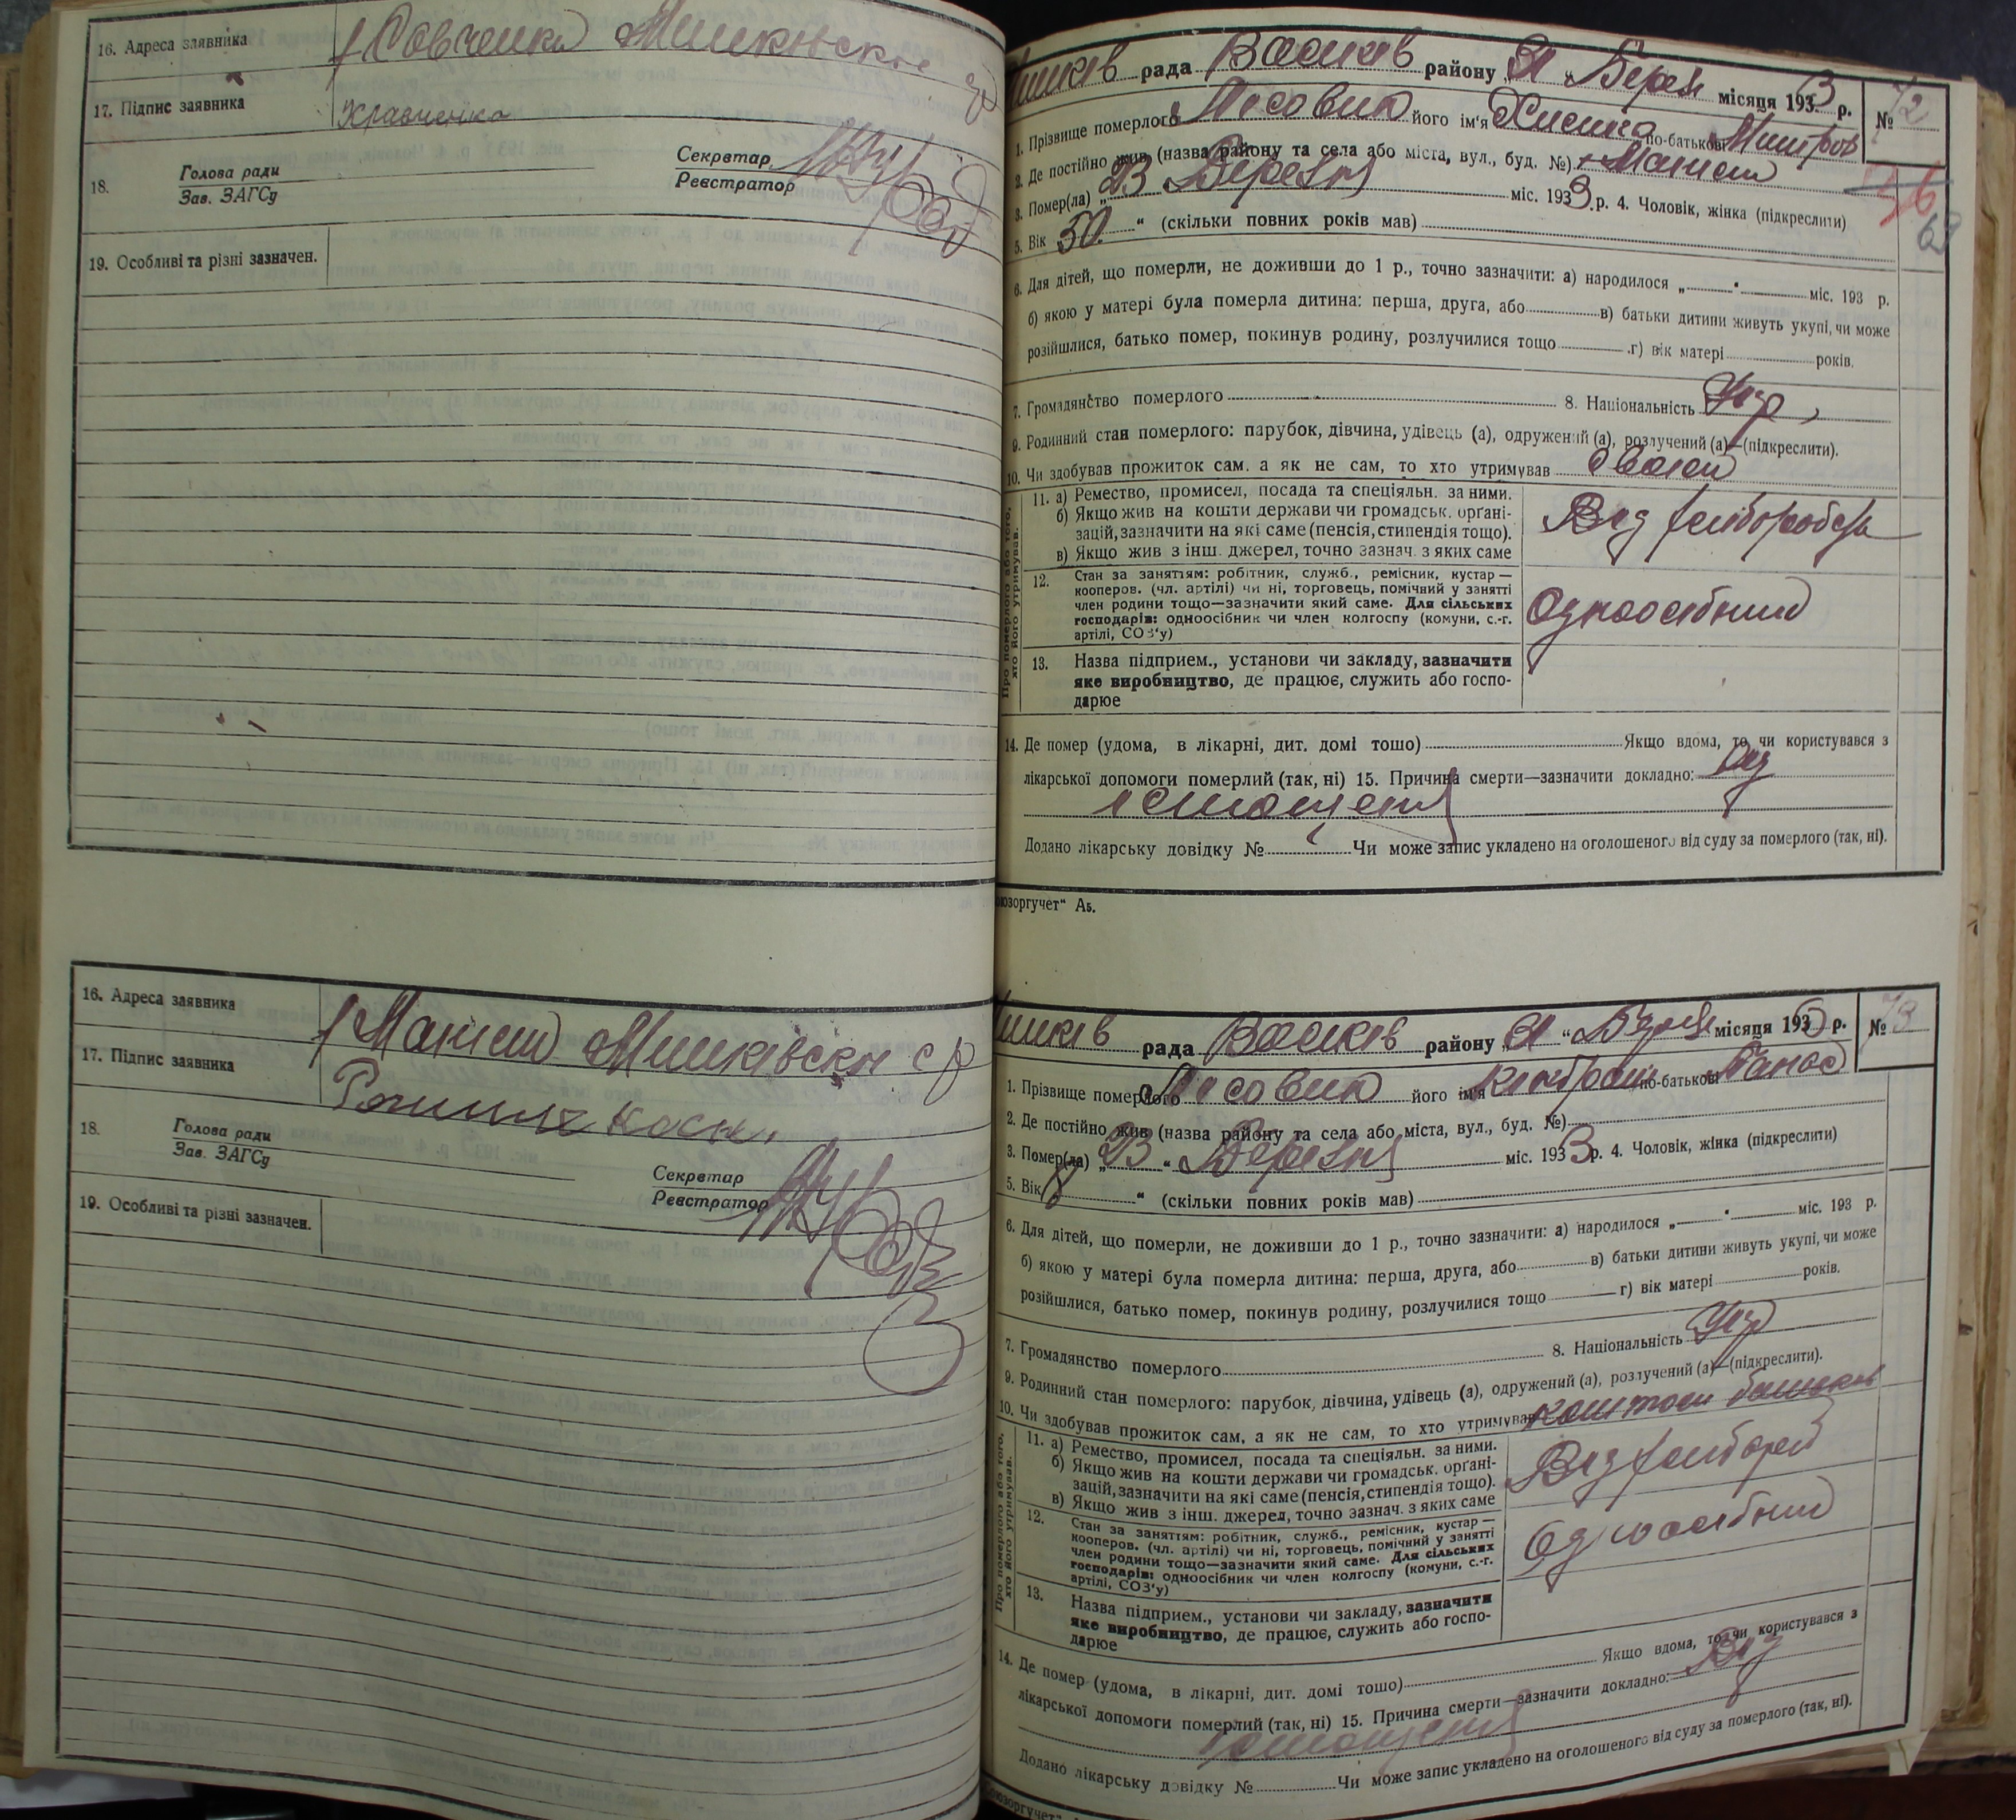 16. Адреса заявника
17. Підпис заявника Кравченко
18. Голова ради
Зав. ЗАГСу
Секретар
Реєстратор
19. Особливі та різні зазначен.
16. Адреса заявника
17. Підпис заявника
18. Голова ради
Зав. ЗАГСу
Секретар
Реєстратор
19. Особливі та різні зазначен.
рада району місяця 193 3 р. № 72
1. Прізвище померлого Лісовик його ім'я по-батькові
2. Де постійно жив (назва району та села або міста, вул., буд. №)
3. Помер(ла) „23 Березня міс. 1933 р. 4. Чоловік, жінка (підкреслити)
5. Вік 50 “ (скільки повних років мав)
6. Для дітей, що померли, не доживши до 1 р., точно зазначити: а) народилося „ “ міс. 193 р.
б) якою у матері була померла дитина: перша, друга, або в) батьки дитини живуть укупі, чи може
розійшлися, батько помер, покинув родину, розлучилися тощо г) вік матері років.
7. Громадянство померлого 8. Національність Укр
9. Родинний стан померлого: парубок, дівчина, удівець (а), одружений (а), розлучений (а)—(підкреслити).
10. Чи здобував прожиток сам, а як не сам, то хто утримував
Про померлого або того,
хто його утримував.
11. а) Ремество, промисел, посада та спеціяльн. за ними.
б) Якщо жив на кошти держави чи громадськ. орґані-
зацій, зазначити на які саме (пенсія, стипендія тощо).
в) Якщо жив з інш. джерел, точно зазнач. з яких саме
12. Стан за заняттям: робітник, служб., ремісник, кустар —
кооперов. (чл. артілі) чи ні, торговець, помічний у занятті
член родини тощо—зазначити який саме. Для сільських
господарів: одноосібник чи член колгоспу (комуни, с.-г.
артілі, СОЗ'у)
Одноосібник
13. Назва підприєм., установи чи закладу, зазначити
яке виробництво, де працює, служить або госпо-
дарює
14. Де помер (удома, в лікарні, дит. домі тощо) Якщо вдома, то чи користувався з
лікарської допомоги померлий (так, ні) 15. Причина смерти—зазначити докладно: Від
істощенія
Додано лікарську довідку № Чи може запис укладено на оголошеного від суду за померлого (так, ні).
юзоргучет“ А5.
рада району місяця 193 3 р. № 73
1. Прізвище померлого Лісовик його ім'я по-батькові Панас
2. Де постійно жив (назва району та села або міста, вул., буд. №)
3. Помер(ла) „23 “ Березня міс. 1933 р. 4. Чоловік, жінка (підкреслити)
5. Вік 8 “ (скільки повних років мав)
6. Для дітей, що померли, не доживши до 1 р., точно зазначити: а) народилося „ “ міс. 193 р.
б) якою у матері була померла дитина: перша, друга, або в) батьки дитини живуть укупі, чи може
розійшлися, батько помер, покинув родину, розлучилися тощо г) вік матері років.
7. Громадянство померлого 8. Національність Укр
9. Родинний стан померлого: парубок, дівчина, удівець (а), одружений (а), розлучений (а)—(підкреслити).
10. Чи здобував прожиток сам, а як не сам, то хто утримував коштом батьків
Про померлого або того,
хто його утримував.
11. а) Ремество, промисел, посада та спеціяльн. за ними.
б) Якщо жив на кошти держави чи громадськ. орґані-
зацій, зазначити на які саме (пенсія, стипендія тощо).
в) Якщо жив з інш. джерел, точно зазнач. з яких саме
12. Стан за заняттям: робітник, служб., ремісник, кустар —
кооперов. (чл. артілі) чи ні, торговець, помічний у занятті
член родини тощо—зазначити який саме. Для сільських
господарів: одноосібник чи член колгоспу (комуни, с.-г.
артілі, СОЗ'у)
Одноосібник
13. Назва підприєм., установи чи закладу, зазначити
яке виробництво, де працює, служить або госпо-
дарює
14. Де помер (удома, в лікарні, дит. домі тощо) Якщо вдома, то чи користувався з
лікарської допомоги померлий (так, ні) 15. Причина смерти—зазначити докладно: Від
істощенія
Додано лікарську довідку № Чи може запис укладено на оголошеного від суду за померлого (так, ні).